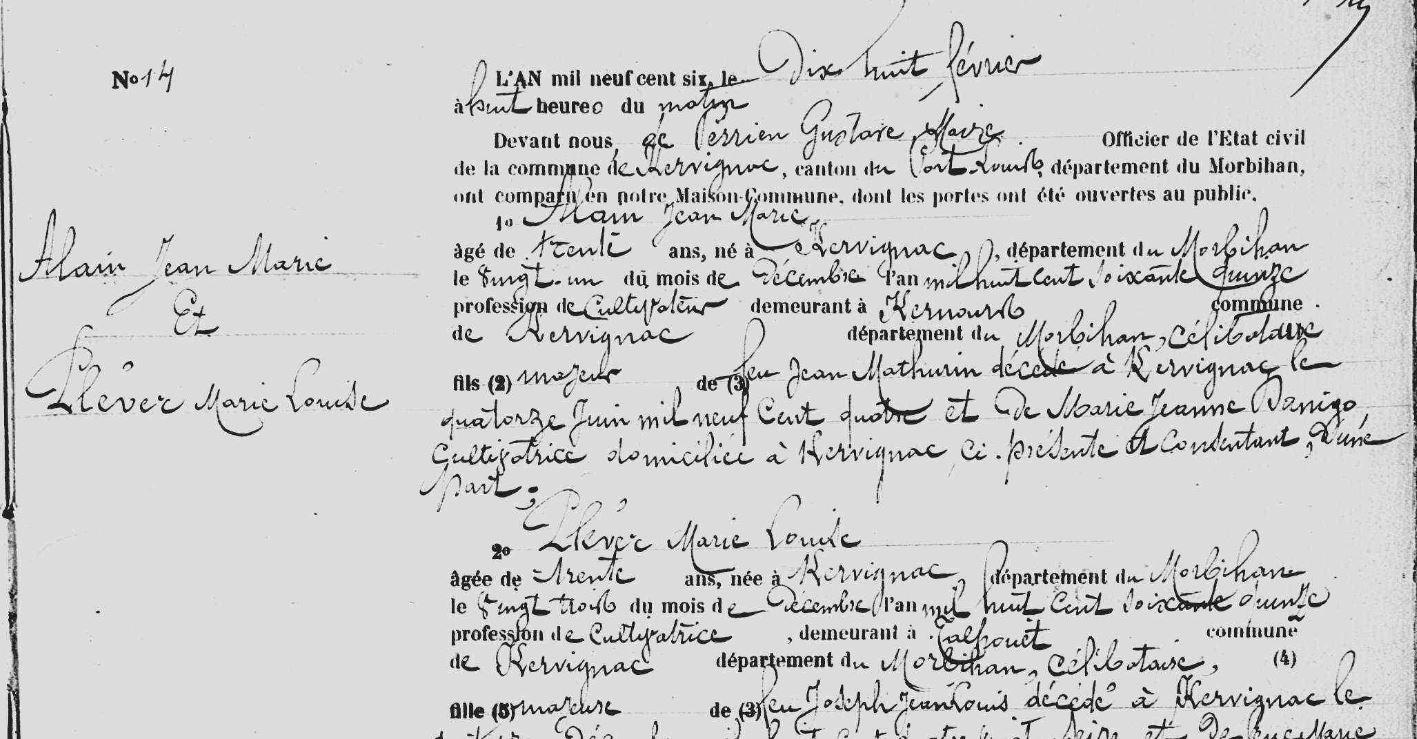 No 14
L'AN mil neuf cent six, le Dix huit février
à huit heures du matin
Devant nous, de Perrien Gustave, Maire Officier de l'Etat civil
de la commune de Kervignac, canton du Port-Louis, département du Morbihan,
ont comparu en notre Maison-Commune, dont les portes ont été ouvertes au public.
1o Alain Jean Marie,
âgé de trente ans, né à Kervignac, département du Morbihan
le vingt-un du mois de décembre l'an mil huit cent soixante quinze
profession de Cultivateur demeurant à commune
de Kervignac département du Morbihan, célibataire
fils (2) majeur de (3) feu Jean Mathurin décédé à Kervignac le
quatorze Juin mil neuf Cent quatre et de Marie Jeanne Danigo,
Cultivatrice domiciliée à Kervignac, ci-présente et consentant, d'une
part;
Alain Jean Marie
Et
Pléver Marie Louise
2o Pléver Marie Louise
âgée de trente ans, née à Kervignac, département du Morbihan
le vingt trois du mois de décembre l'an mil huit cent soixante quinze
profession de Cultivatrice, demeurant à Talhouët commune
de Kervignac département du Morbihan, célibataire, (4)
fille (5) majeure de (3) feu Joseph Jean Louis décédé à Kervignac le